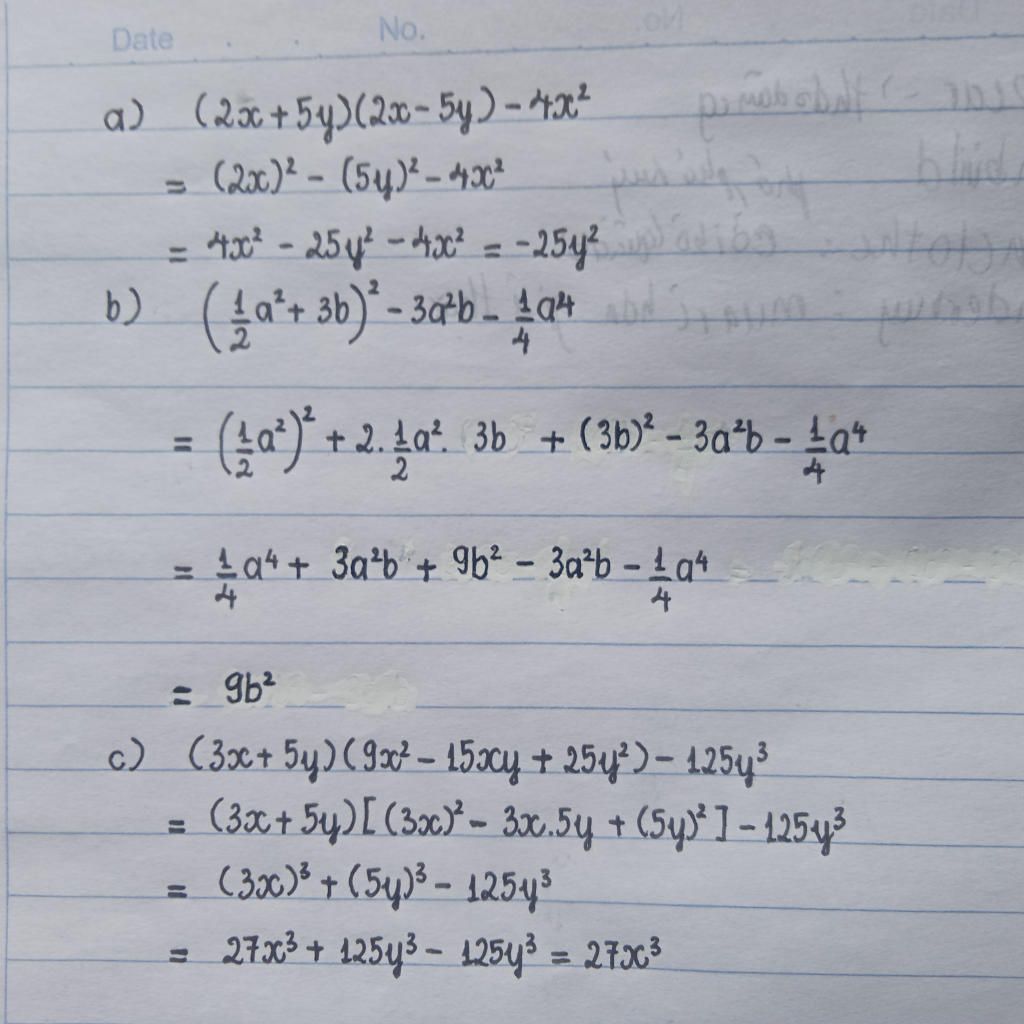 Date . . No.
a) (2x + 5y)(2x - 5y) - 4x²
= (2x)² - (5y)² - 4x²
= 4x² - 25y² - 4x² = -25y²
b) (1/2 a² + 3b)² - 3a²b - 1/4 a⁴
= (1/2 a²)² + 2. 1/2 a². 3b + (3b)² - 3a²b - 1/4 a⁴
= 1/4 a⁴ + 3a²b + 9b² - 3a²b - 1/4 a⁴
= 9b²
c) (3x + 5y)(9x² - 15xy + 25y²) - 125y³
= (3x + 5y)[(3x)² - 3x.5y + (5y)²] - 125y³
= (3x)³ + (5y)³ - 125y³
= 27x³ + 125y³ - 125y³ = 27x³